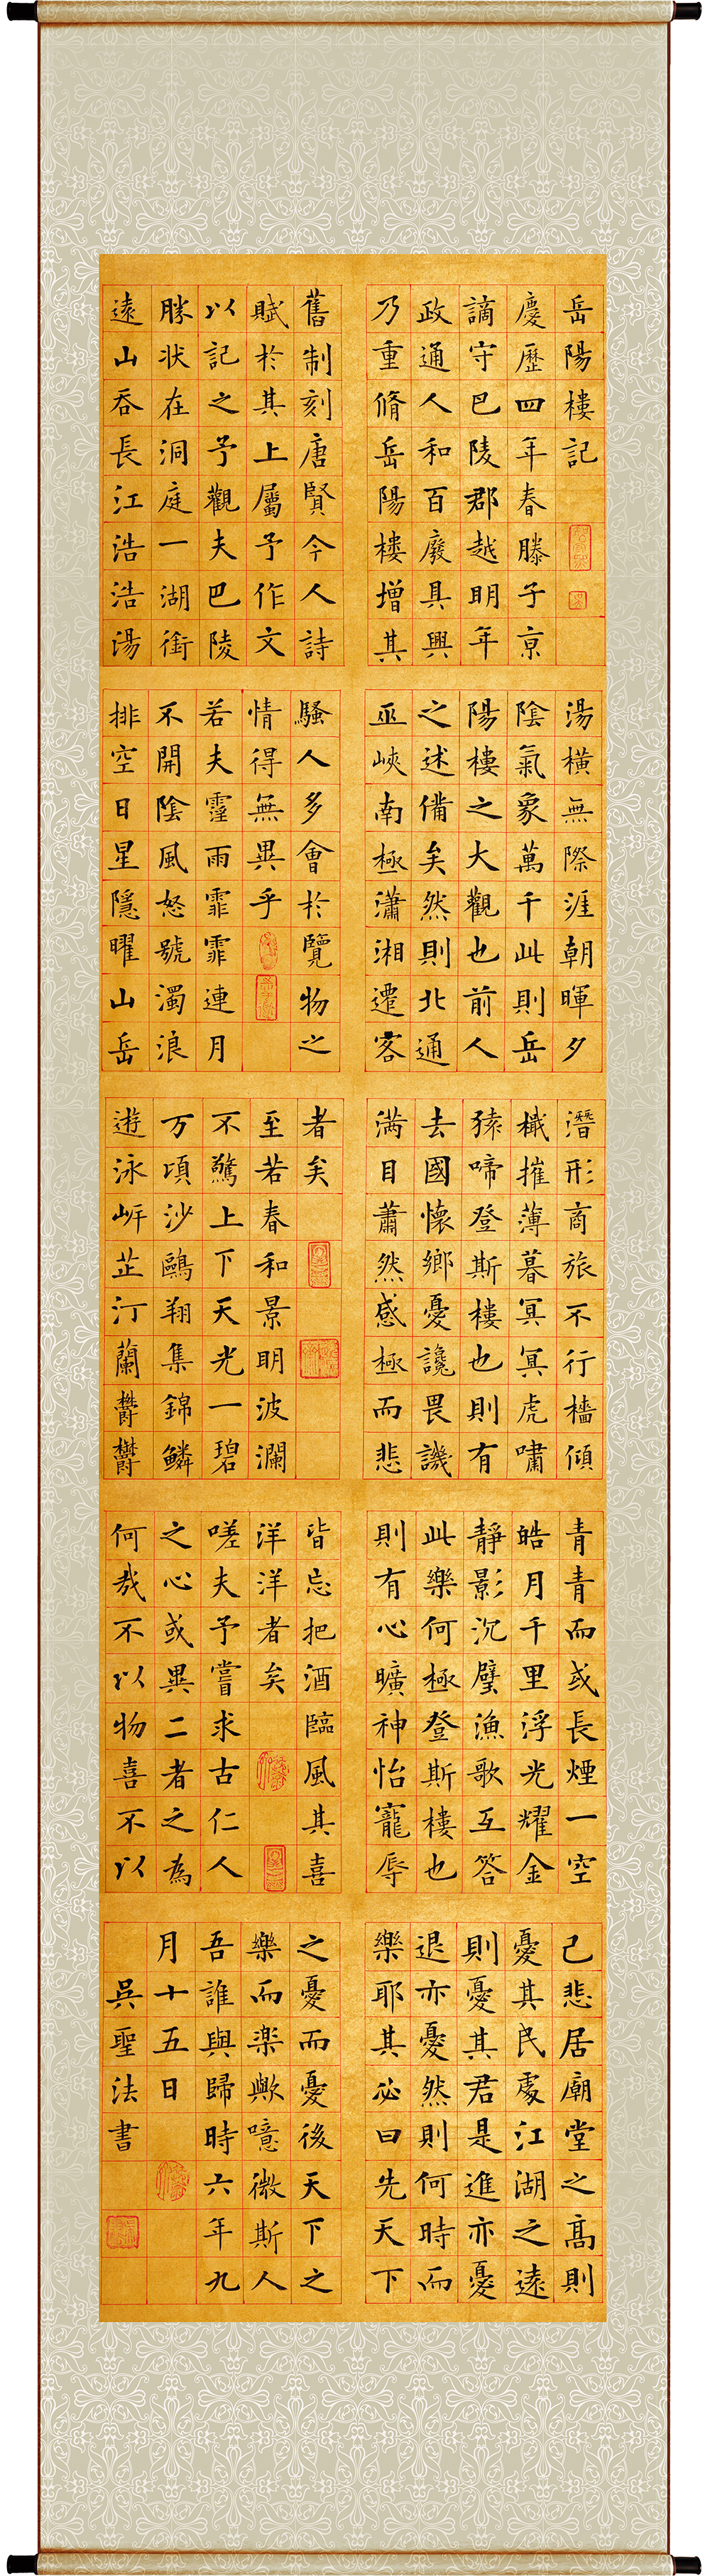 岳陽樓記
慶歷四年春滕子亰
謫守巴陵郡越明年
政通人和百廢具興
乃重脩岳陽樓增其
舊制刻唐賢今人詩
賦於其上屬予作文
以記之予觀夫巴陵
勝状在洞庭一湖銜
遠山吞長江浩浩湯
湯橫無際涯朝暉夕
陰氣象萬千此則岳
陽樓之大觀也前人
之述備矣然則北通
巫峽南極瀟湘遷客
騷人多會於覽物之
情得無異乎
若夫霪雨霏霏連月
不開陰風怒號濁浪
排空日星隱曜山岳
潛形商旅不行檣傾
檝摧薄暮冥冥虎嘯
猿啼登斯樓也則有
去國懷鄉憂讒畏譏
滿目蕭然感極而悲
者矣
至若春和景明波瀾
不驚上下天光一碧
万頃沙鷗翔集錦鱗
遊泳岍芷汀蘭欝欝
青青而或長煙一空
皓月千里浮光耀金
靜影沉璧漁歌互答
此樂何極登斯樓也
則有心曠神怡寵辱
皆忘把酒臨風其喜
洋洋者矣
嗟夫予嘗求古仁人
之心或異二者之為
何哉不以物喜不以
己悲居廟堂之高則
憂其民處江湖之遠
則憂其君是進亦憂
退亦憂然則何時而
樂耶其必曰先天下
之憂而憂後天下之
樂而楽歟噫微斯人
吾誰與歸時六年九
月十五日
吳聖法書